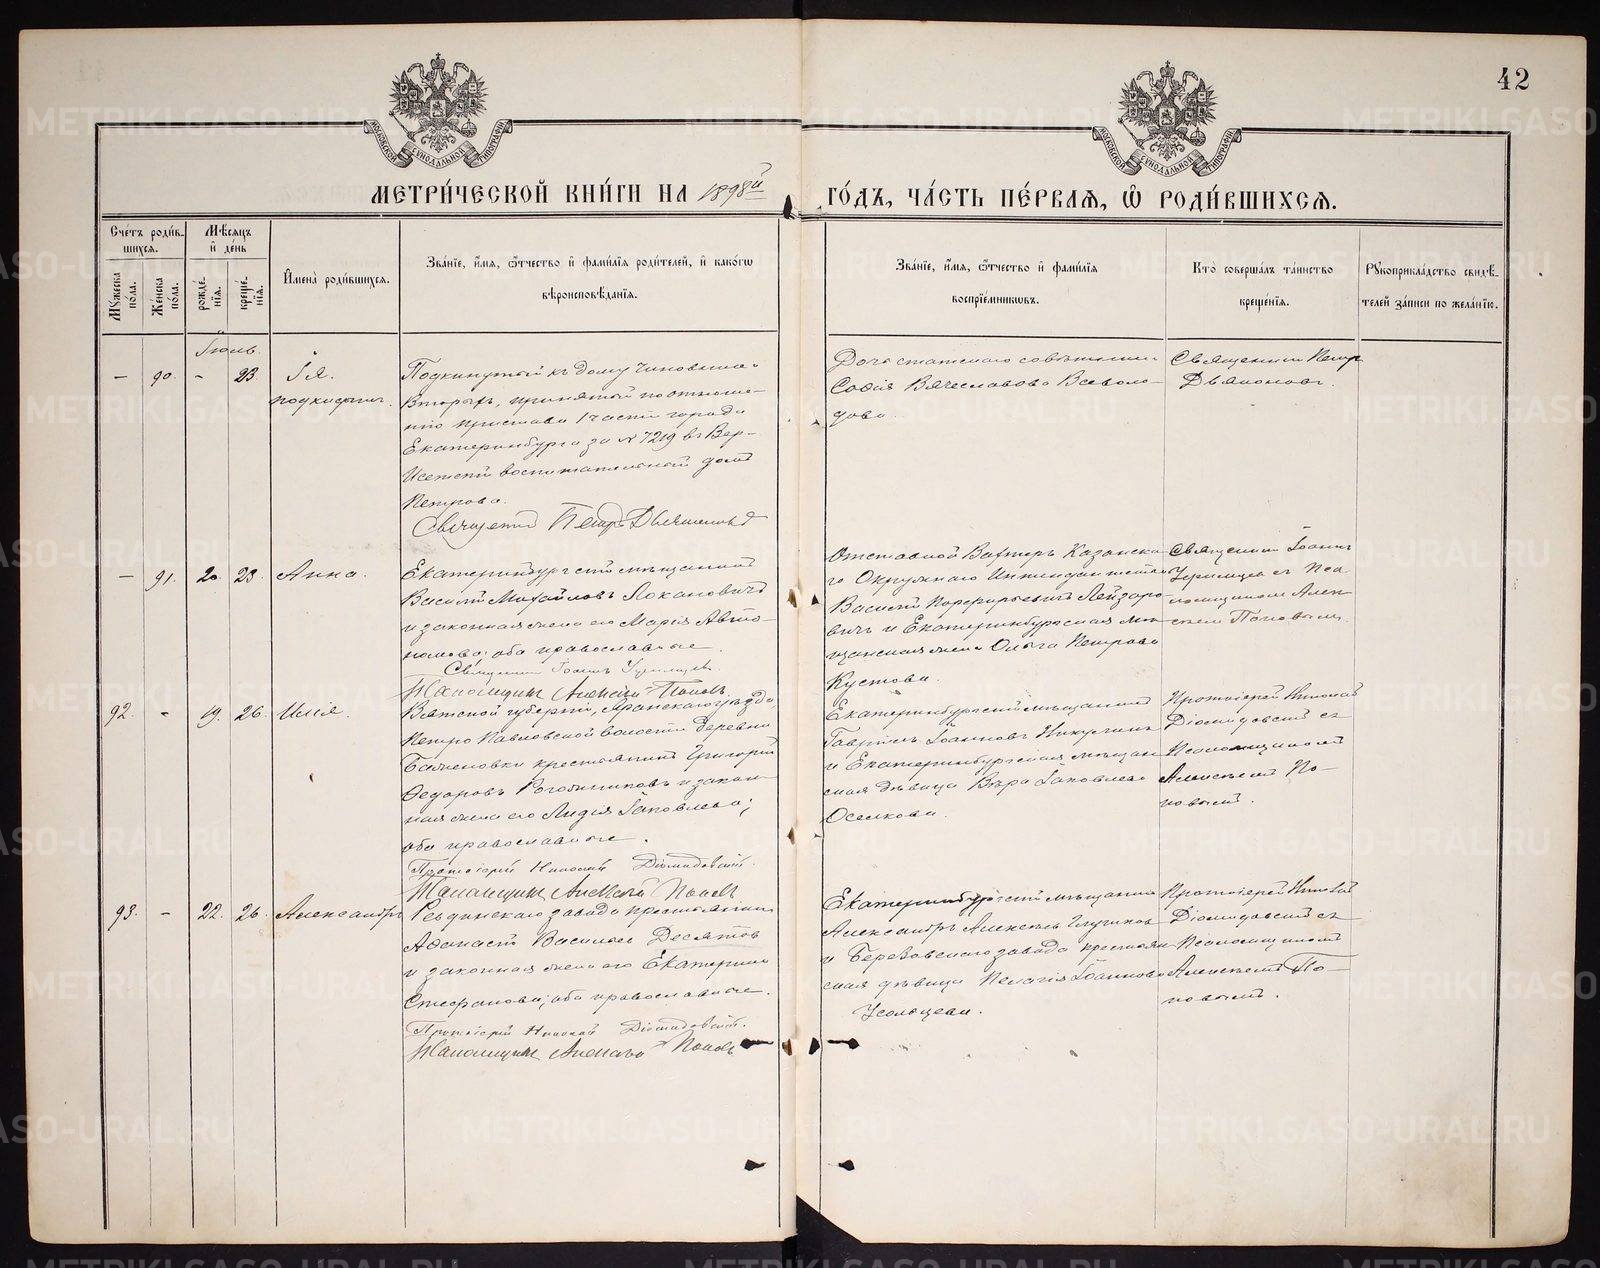 42
МЕТРИ́ЧЕСКОЙ КНИ́ГИ НА 1898й ГО́ДЪ, ЧА́СТЬ ПЕ́РВАѦ, Ѽ РОДИ́ВШИХСѦ.
Сче́тъ роди́в-
шихсѧ.
Мѣ́сѧцъ
и҆ де́нь
Мꙋ́жеска по́ла.
Же́нска по́ла.
рожде́-
нїѧ.
креще́-
нїѧ.
И҆мена̀ роди́вшихсѧ.
Зва́нїе, и҆́мѧ, ѻ҆́тчество и҆ фами́лїѧ роди́телей, и҆ како́гѡ
вѣроисповѣ́данїѧ.
Зва́нїе, и҆́мѧ, ѻ҆́тчество и҆ фами́лїѧ
воспрїе́мникѡвъ.
Кто̀ соверша́лъ та́инство
креще́нїѧ.
Рꙋкоприкла́дство свидѣ́-
телей за́писи по жела́нїю.
Іюль.
– 90. – 23
Ія.
подкидышъ.
Подкинутый къ дому Чиновника
Вторыхъ, принятой по отноше-
нію пристава 1 части города
Екатеринбурга за № 7219 въ Вер-
Исетскій воспитательный домъ
Петрова.
Священникъ Петръ Дьяконовъ
Дочь статскаго совѣтника
Софія Вячеславова Всеволо-
дова.
Священникъ Петръ
Дьяконовъ.
– 91. 20. 23.
Анна.
Екатеринбургскій мѣщанинъ
Василій Михайловъ Локановичъ
и законная жена его Марія Авто-
номова; оба православные.
Священникъ Іоаннъ
Псаломщикъ Алексѣй Поповъ.
Отставной Вахтеръ Казанска-
го Окружнаго Интендантства
Василій Порфирьевичъ Лейзаро-
вичъ и Екатеринбургская мѣ-
щанская жена Ольга Петрова
Кустова.
Священникъ Іоаннъ
съ Пса-
ломщикомъ Алек-
сѣемъ Поповымъ.
92. – 19. 26.
Илія.
Вятской губерніи, Яранскаго уѣзда,
Петро Павловской волости деревни
крестьянинъ Григорій
Ѳедоровъ Роготниковъ и закон-
ная жена его Лидія Іаковлева;
оба православные.
Протоіерей Николай Діомидовскій.
Псаломщикъ Алексѣй Поповъ
Екатеринбургскій мѣщанинъ
Гавріилъ Іоанновъ Никулинъ
и Екатеринбургская мѣщан-
ская дѣвица Вѣра Іаковлева
Оселкова.
Протоіерей Николай
Діомидовскій съ
Псаломщикомъ
Алексѣемъ По-
повымъ.
93. – 22. 26.
Александръ
Ревдинскаго завода крестьянинъ
Аѳанасій Васильевъ Десятовъ
и законная жена его Екатерина
Стефанова; оба православные.
Протоіерей Николай Діомидовскій.
Псаломщикъ Алексѣй Поповъ
Екатеринбургскій мѣщанинъ
Александръ Алексѣевъ
и Березовскаго завода крестьян-
ская дѣвица Пелагія Іоаннова
Усольцева.
Протоіерей Николай
Діомидовскій съ
Псаломщикомъ
Алексѣемъ По-
повымъ.